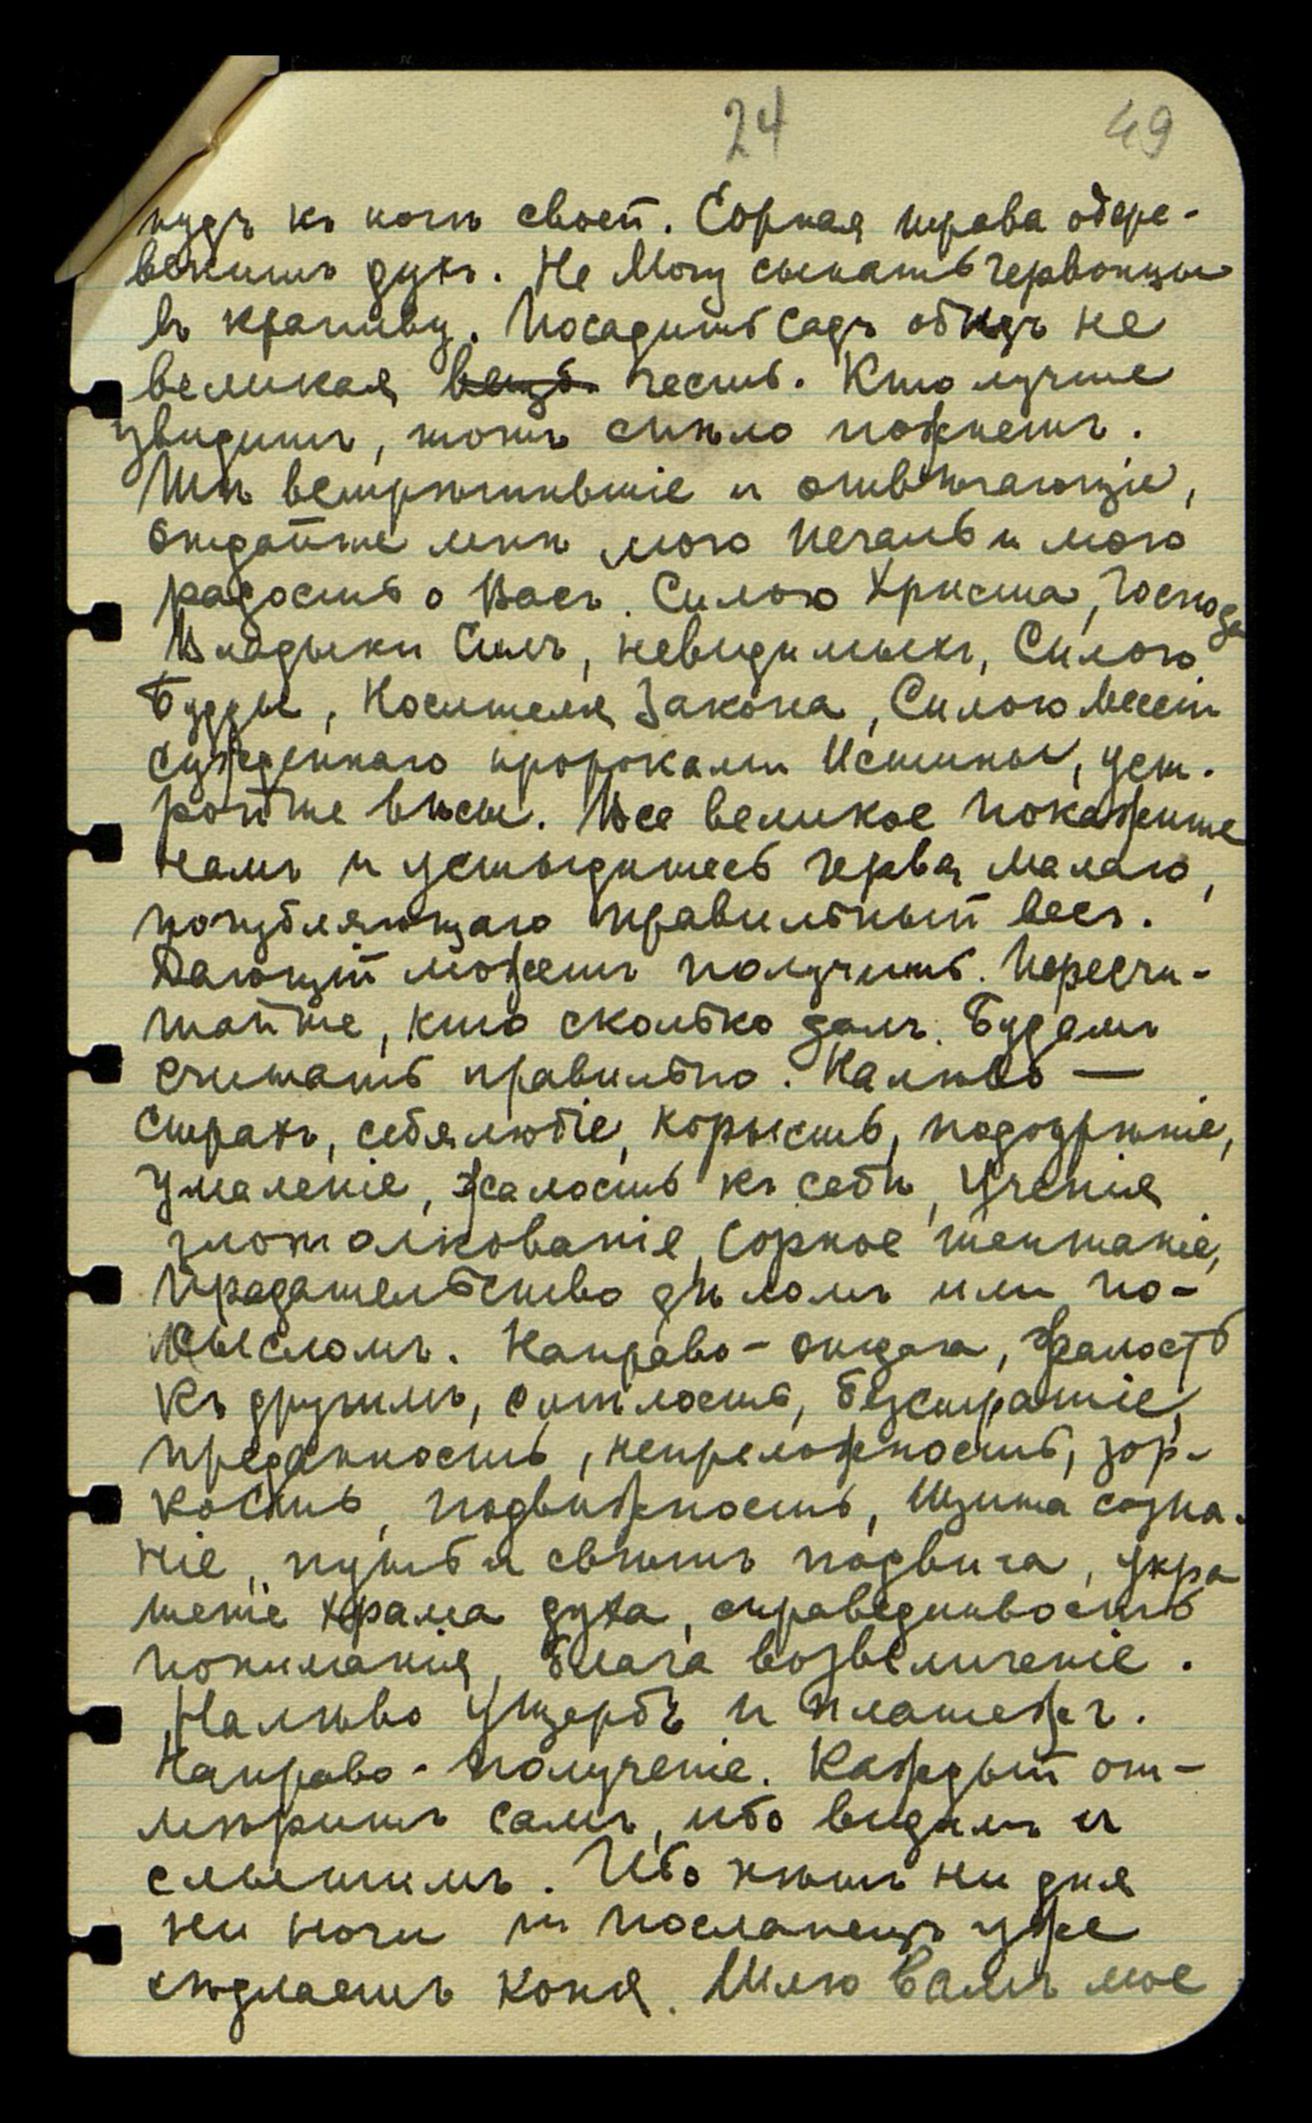 24 49
пудъ къ ногѣ своей. Сорная трава обере-
венитъ духъ. Не Могу сыпать червонцы
въ крапиву. Посадить садъ обидъ не
великая вещь. честь. Кто лучше
увидитъ, тотъ смѣло пожнетъ.
Тѣ встрѣтившіе и отвѣчающіе,
отдайте мнѣ мою печаль и мою
радость о Васъ. Силою Христа, Господа
Владыки Силъ, невидимыхъ, Силою
Будды, Носителя Закона, Силою Мессіи
сужденнаго пророками Истины, уст-
ройте вѣсы. Все великое покажите
намъ и устыдитесь червя малаго,
погубляющаго правильный весъ.
Дающій можетъ получить. Пересчи-
тайте, кто сколько далъ. Будемъ
считать правильно. Налѣво —
страхъ, себялюбіе, корысть, подозрѣніе,
умаленіе, жалость къ себѣ, Ученія
злотолкованіе, сорное шептаніе,
предательство дѣломъ или по-
мысломъ. Направо - отдача, жалость
къ другимъ, смѣлость, безстрашіе,
преданность, непреложность, зор-
кость, подвижность, Щита созна-
ніе, путь и свѣтъ подвига, укра
шеніе храма духа, справедливость
пониманія, блага возвеличеніе.
Налѣво Ущербъ и платежъ.
Направо - получение. Каждый от-
мѣритъ самъ, ибо видимъ и
слышимъ. Ибо нѣтъ ни дня
ни ночи и посланецъ уже
сѣдлаетъ коня. Шлю Вамъ мое